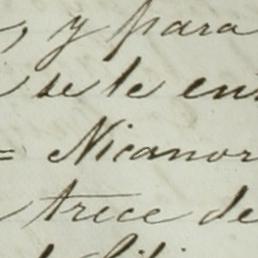 , y para
se le en
= Nicanor
trece de